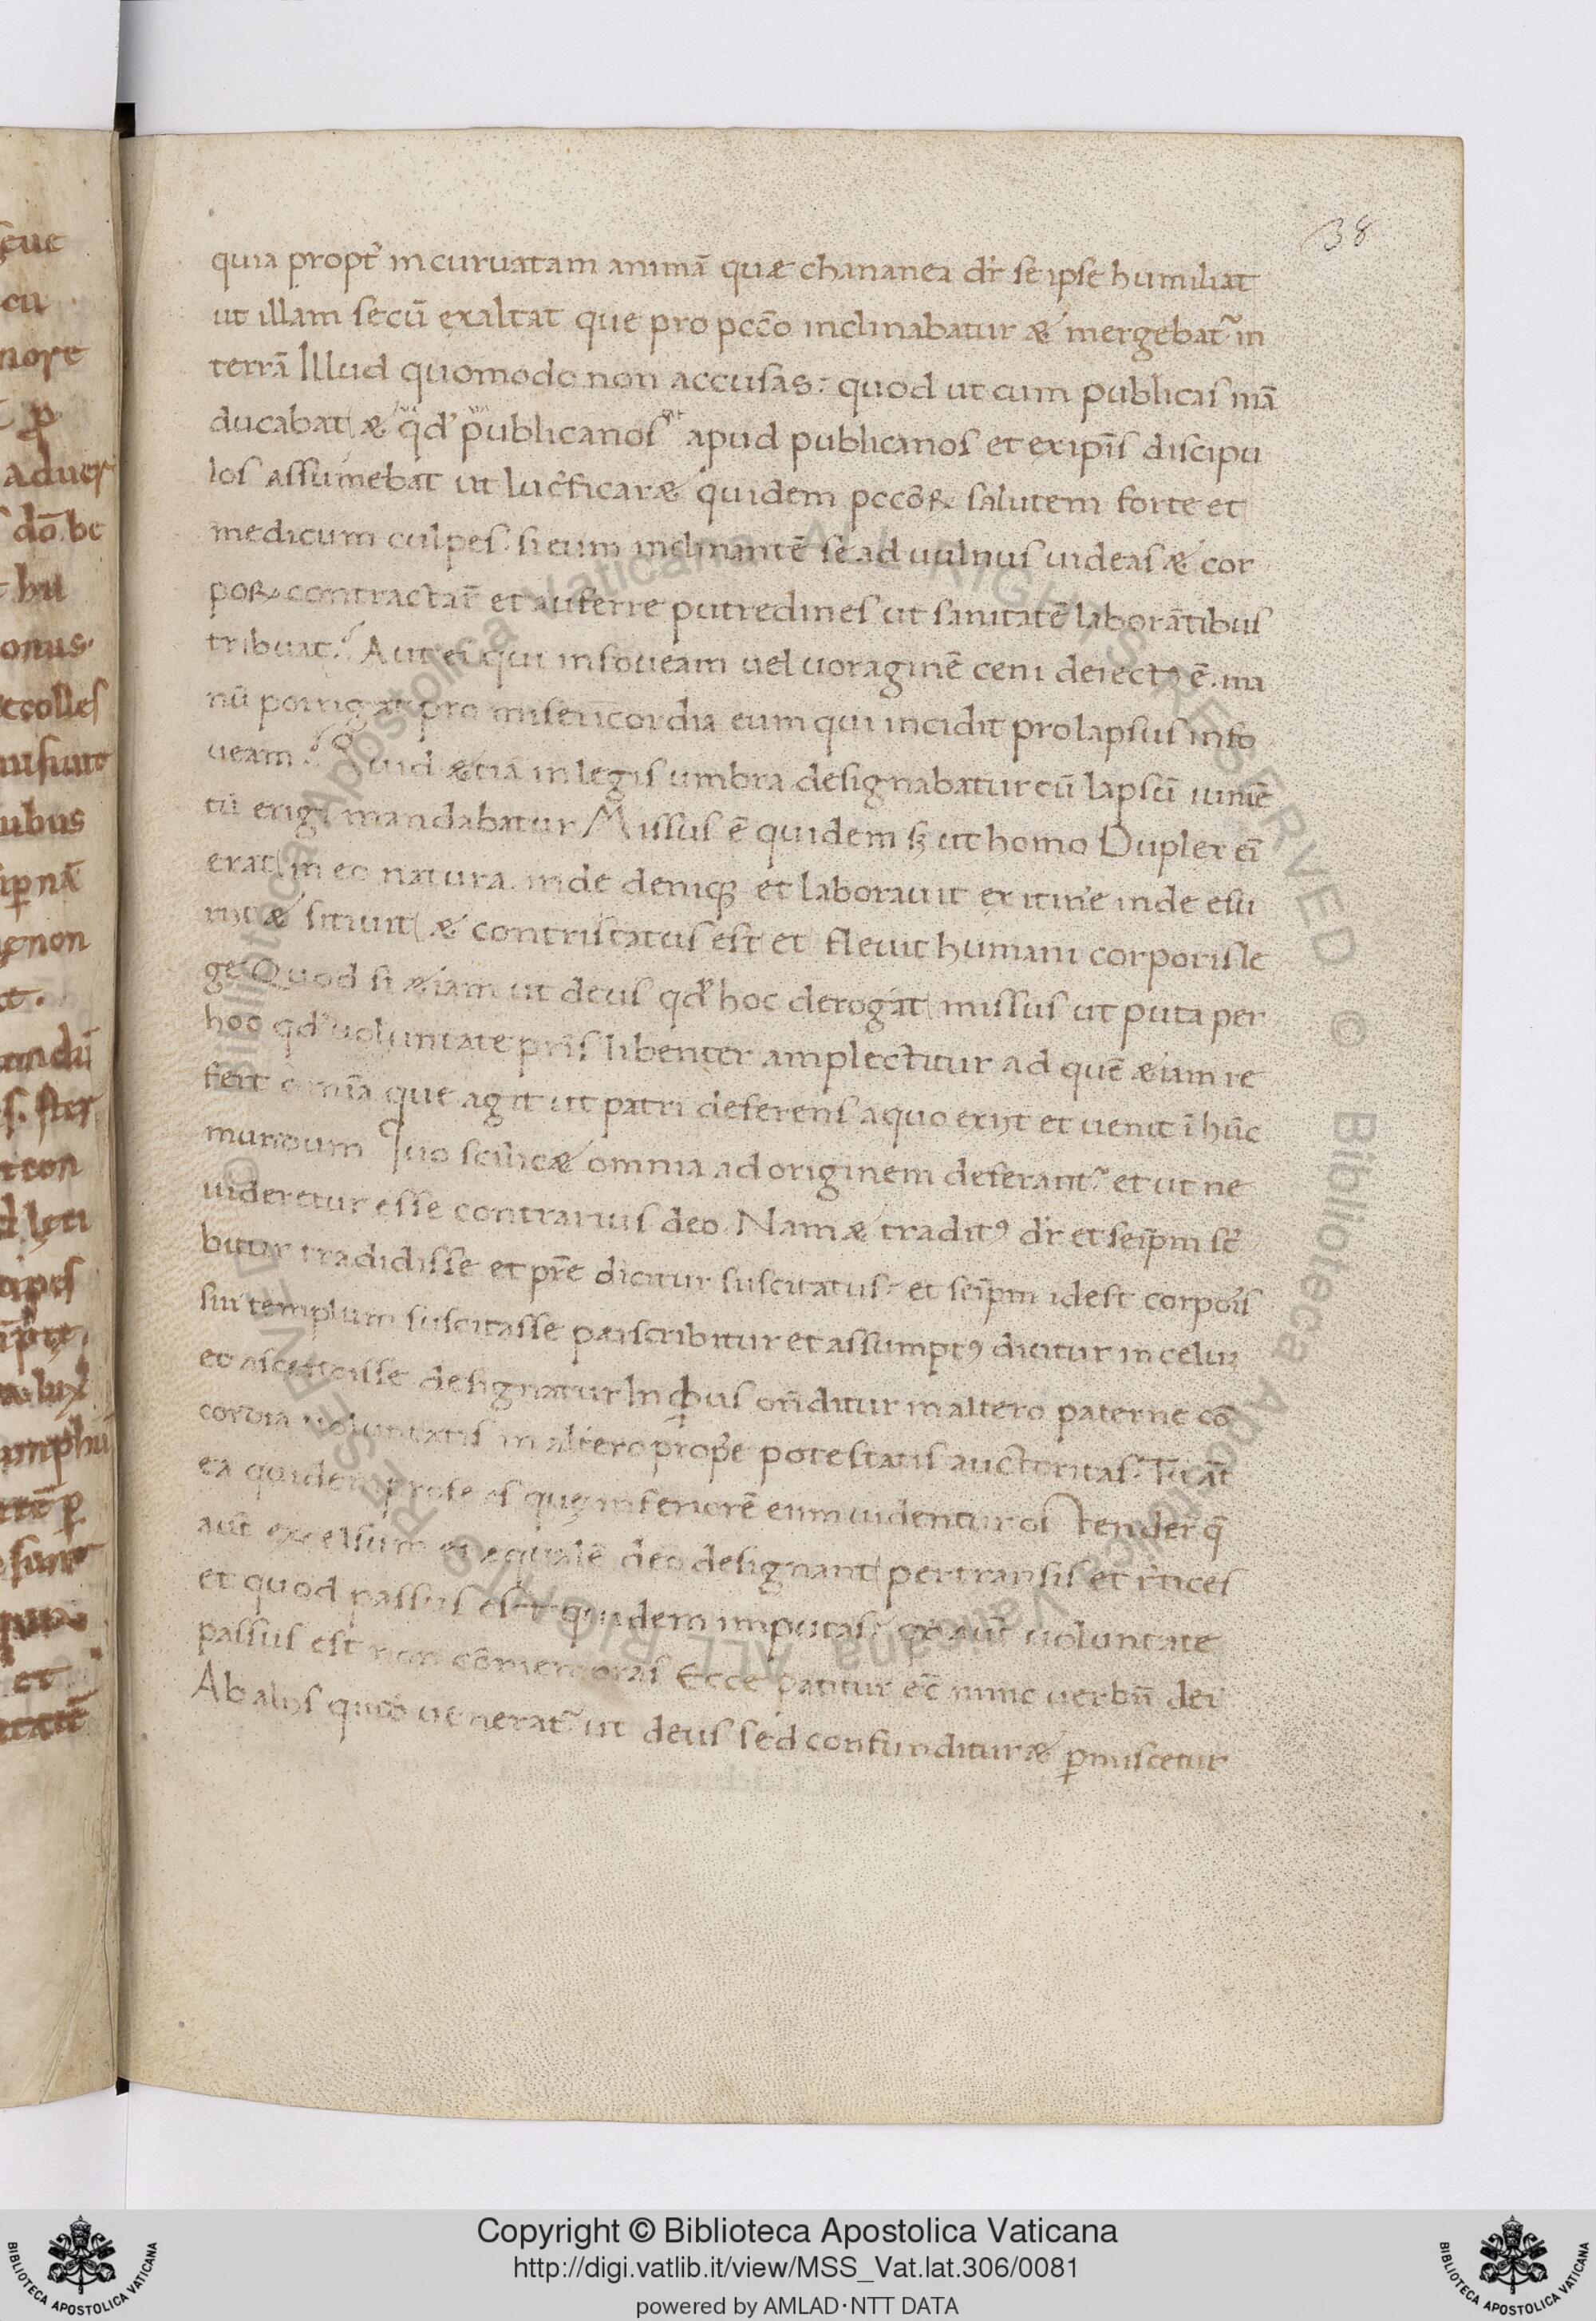 38
quia propt̃ incuruatam animā quæ chananea dr̃ se ipse humiliat
ut illam secū exaltat que pro pccō inclinabatur æ mergebat᷑ in
terrā Illud quomodo non accusas: quod ut cum publicas mā
ducabat æ qd̓ publicanos apud publicanos et ex ip̄is discipu
los assumebat ut luc̃ficaræ quidem pccōꝝ salutem forte et
medicum culpes. si eum inclinantē se ad uulnus uideas æ cor
poꝝ contractar̃ et auferre putredines ut sanitatē laborātibus
tribuat. Aut ei qui in foueam uel uoraginē ceni deiectꝰ ē. ma
nū porrigat pro misericordia eum qui incidit prolapsus in fo
ueam. Quid ætiā in legis umbra designabatur cū lapsū iumē
tū erigi mandabatur Missus ē quidem sꝫ ut homo Duplex ei
erat in eo natura. inde deniqꝫ et laborauit ex itin̄e inde esu
rijt æ sitiuit æ contristatus est et fleuit humani corporis le
ge Quod si æiam ut deus qd̓ hoc derogat missus ut puta per
hoc qd̓ uoluntate pr̄is libenter amplectitur ad quē æiam re
fert omīa que agit ut patri deferens a quo exijt et uenit ī hūc
mundum Quo scilicæ omnia ad originem deferant᷑ et ut ne
uideretur esse contrarius deo. Nam æ traditꝰ dr̃ et seip̄m sc̄
bitur tradidisse et pr̄e dicitur suscitatus et seip̄m idest corpōis
sui templum suscitasse pæscribitur et assumptꝰ dicitur in celuꝫ
et ascendisse designatur In qbus on̄ditur in altero paterne cō
cordia uoluntatis in altero prop̄e potestatis auctoritas. Tu aūt
ea quidem profers quę inferiorē eum uidentur ostender̃ q̄
aūt excelsum et equalē deo designant pertransis et r̃tices
et quod passus est quidem imputas. qd̓ aūt uoluntate
passus est non cōmemoras Ecce patitur ec̄ nunc uerbū dei
Ab alijs quidē uenerat᷑ ut deus sed confundituræ ꝑmiscetur
Copyright © Biblioteca Apostolica Vaticana
http://digi.vatlib.it/view/MSS_Vat.lat.306/0081
powered by AMLAD·NTT DATA
BIBLIOTECA APOSTOLICA VATICANA
BIBLIOTECA APOSTOLICA VATICANA